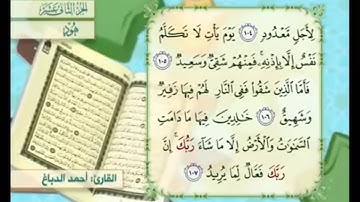 الجزء الثاني عشر
هُود
لِأَجَلٍ مَّعْدُودٍ ١٠٤ يَوْمَ يَأْتِ لَا تَكَلَّمُ
نَفْسٌ إِلَّا بِإِذْنِهِۦ فَمِنْهُمْ شَقِيٌّ وَسَعِيدٌ ١٠٥
فَأَمَّا ٱلَّذِينَ شَقُوا۟ فَفِى ٱلنَّارِ لَهُمْ فِيهَا زَفِيرٌ
وَشَهِيقٌ ١٠٦ خَٰلِدِينَ فِيهَا مَا دَامَتِ
ٱلسَّمَٰوَٰتُ وَٱلْأَرْضُ إِلَّا مَا شَآءَ رَبُّكَ إِنَّ
رَبَّكَ فَعَّالٌ لِّمَا يُرِيدُ ١٠٧
القارئ: أحمد الدباغ